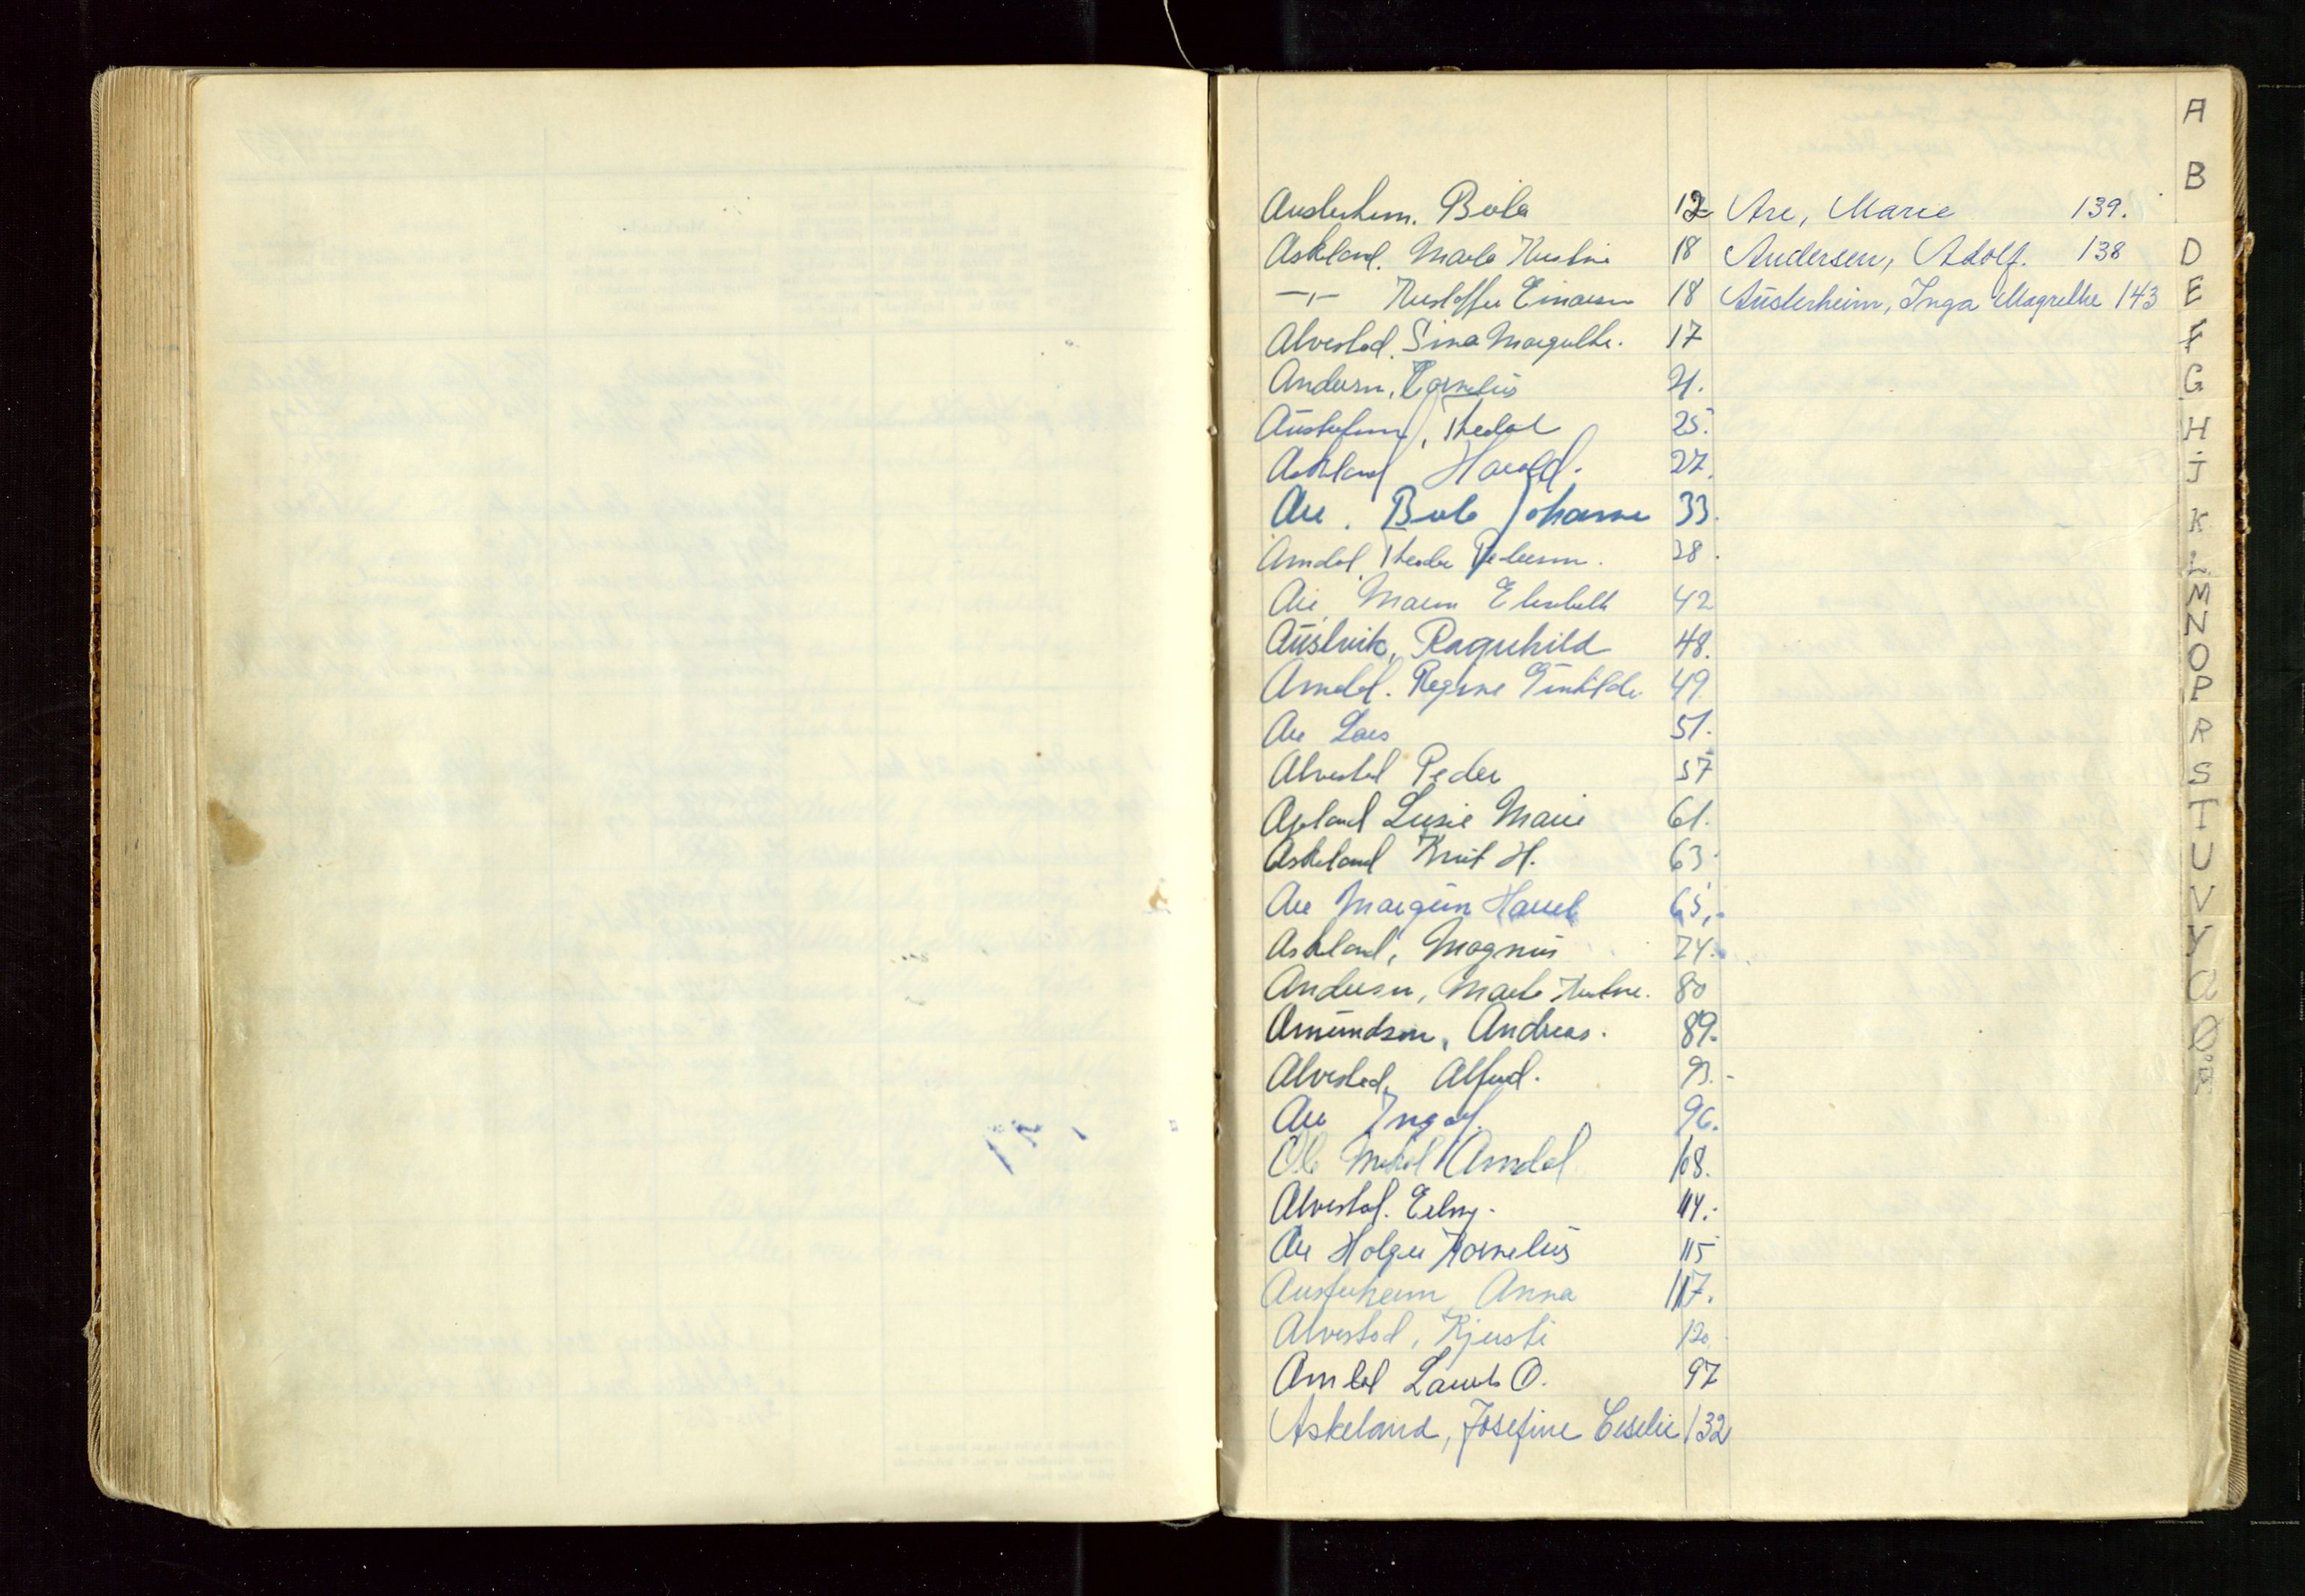 Austerheim. Berta 12
Askeland. Marta Kristine 18
—"— Kristoffer Einarsen 18
Alvestad. Sina Margrethe. 17
Andersen, Kornelius 21.
Austerheim, Thedor 25.
Askeland Harald. 27.
Are. Berta Johanne 33.
Amdal, Theodor Pedersen. 28.
Are, Maren Elisabeth 42
Austvik, Ragnhild 48.
Amdal. Regine Gunhilde 49
Are Lars 51.
Alvestad Peder 57
Apeland Lusie Marie 61.
Askeland Knut H. 63
Are Margun 65.
Askeland, Magnus 74.
Andersen, Marta Kristine. 80
Amundsen, Andreas. 89.
Alvestad, Alfred. 93.
Are Ingolf. 96.
Ole Mikal Amdal 108.
Alvestad. Erling. 114.
Are Holger Kornelius 115
Austerheim, Anna 117.
Alvestad, Kjersti 120.
Amdal Laurits O. 97
Askeland, Josefine Ceselie 132
Are, Marie 139.
Andersen, Adolf. 138
Austerheim, Inga Magrethe 143
A
B
D
E
F
G
H
J
K
L
M
N
O
P
R
S
T
U
V
Y
Ø
Å